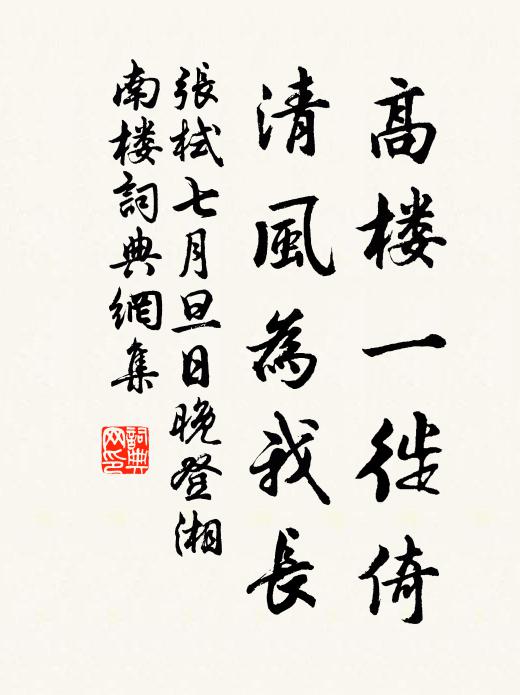 高楼一徙倚
清風為我長
張栻七月旦日晚登湘
南楼詞典網集
詞典網印